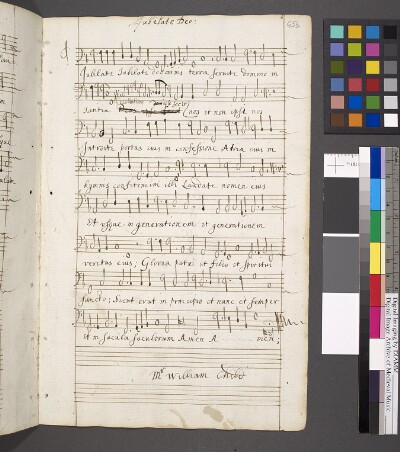 Jubilate Deo:
Jubilate Jubilate deo omnis terra servite domino in
nos et non ipsi nos
Introite portas eius in confessione Atria eius in
hymnis confitemini illi Laudate nomen eius
Et usque in generationem et generationem
veritas eius; Gloria patri et filio et spiritui
sancto; Sicut erat in principio et nunc et semper
et in secula seculorum Amen A men;
Mr William
Digital Imaging by DIAMM
Digital Image Archive of Medieval Music